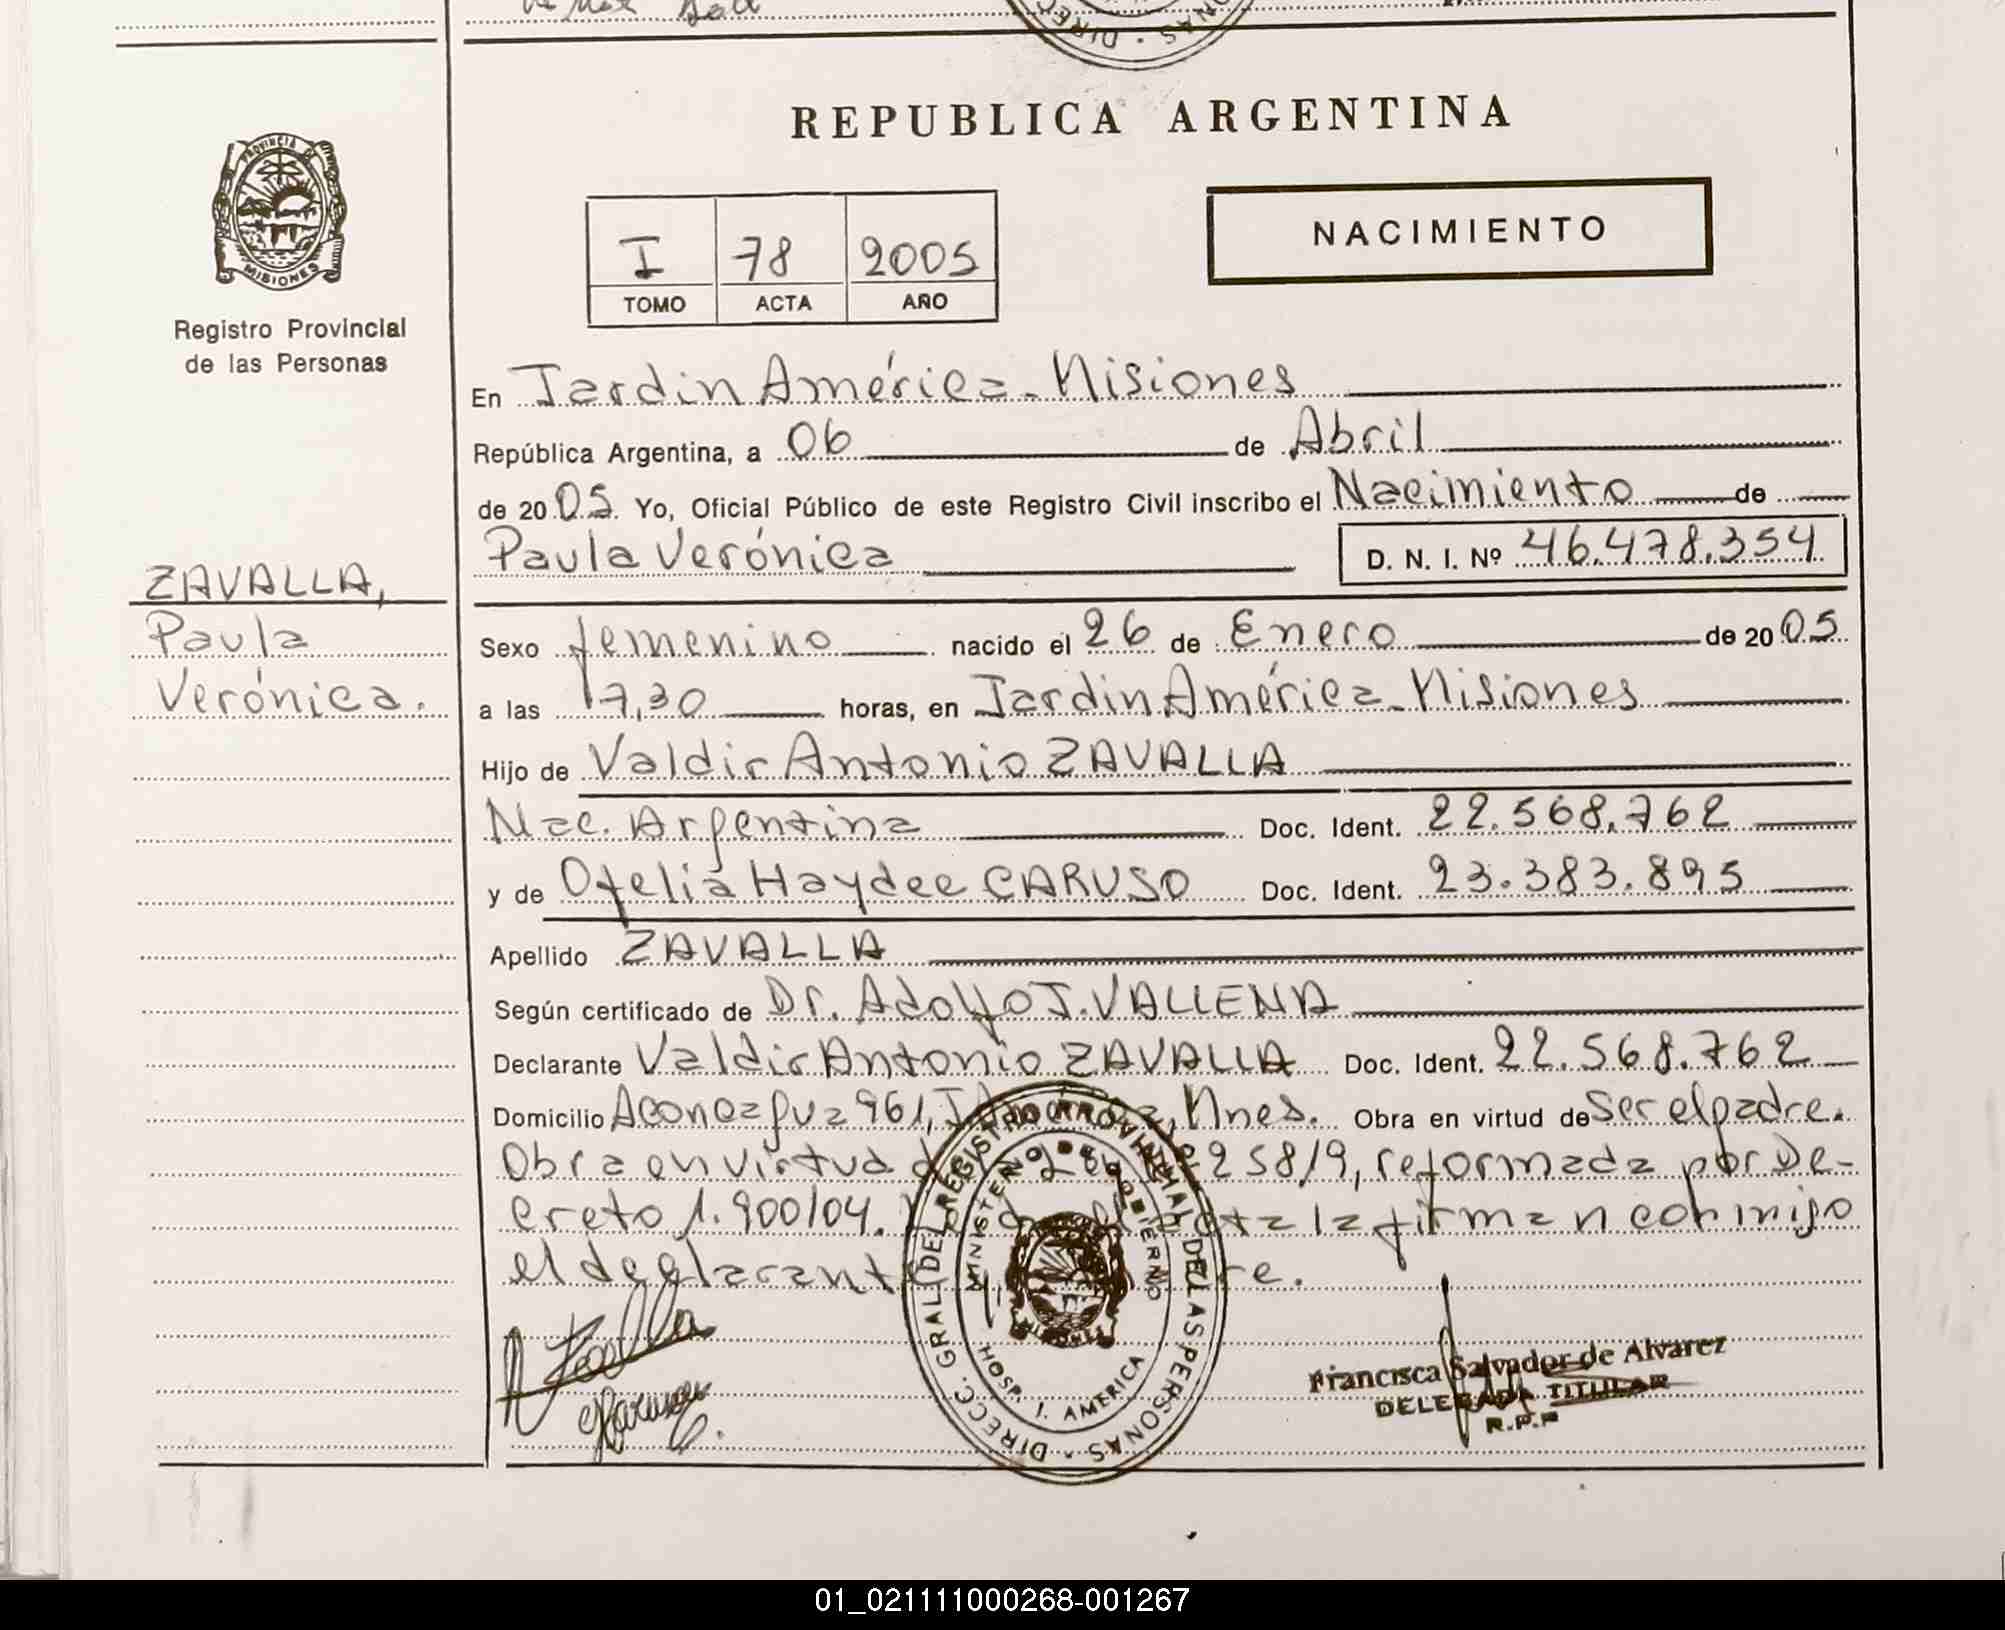 REPUBLICA ARGENTINA
PROVINCIA DE
MISIONES
Registro Provincial
de las Personas
I 78 2005
TOMO ACTA AÑO
NACIMIENTO
En Jardin América - Misiones
República Argentina, a 06 de Abril
de 2005. Yo, Oficial Público de este Registro Civil inscribo el Nacimiento de
Paula Verónica D. N. I. Nº 46.478.354
ZAVALLA,
Paula
Verónica.
Sexo femenino nacido el 26 de Enero de 2005
a las 17,30 horas, en Jardin América - Misiones
Hijo de Valdir Antonio ZAVALLA
Nac. Argentina Doc. Ident. 22.568.762
y de Ofelia Haydee CARUSO Doc. Ident. 23.383.895
Apellido ZAVALLA
Según certificado de Dr. Adolfo J. VALLENA
Declarante Valdir Antonio ZAVALLA Doc. Ident. 22.568.762
Domicilio Aconcagua 961, Mnes. Obra en virtud de Ser el padre.
Obra en virtud Ley Nº 258/9, reformada por De-
creto 1.900/04. la firman conmigo
el declarante
DIRECC. GRAL. DEL REGISTRO PROVINCIAL DE LAS PERSONAS
MINISTERIO DE GOBIERNO
HOSP. J. AMERICA
MISIONES
Francisca Salvador de Alvarez
DELEGADA TITULAR
R.P.P
01_021111000268-001267